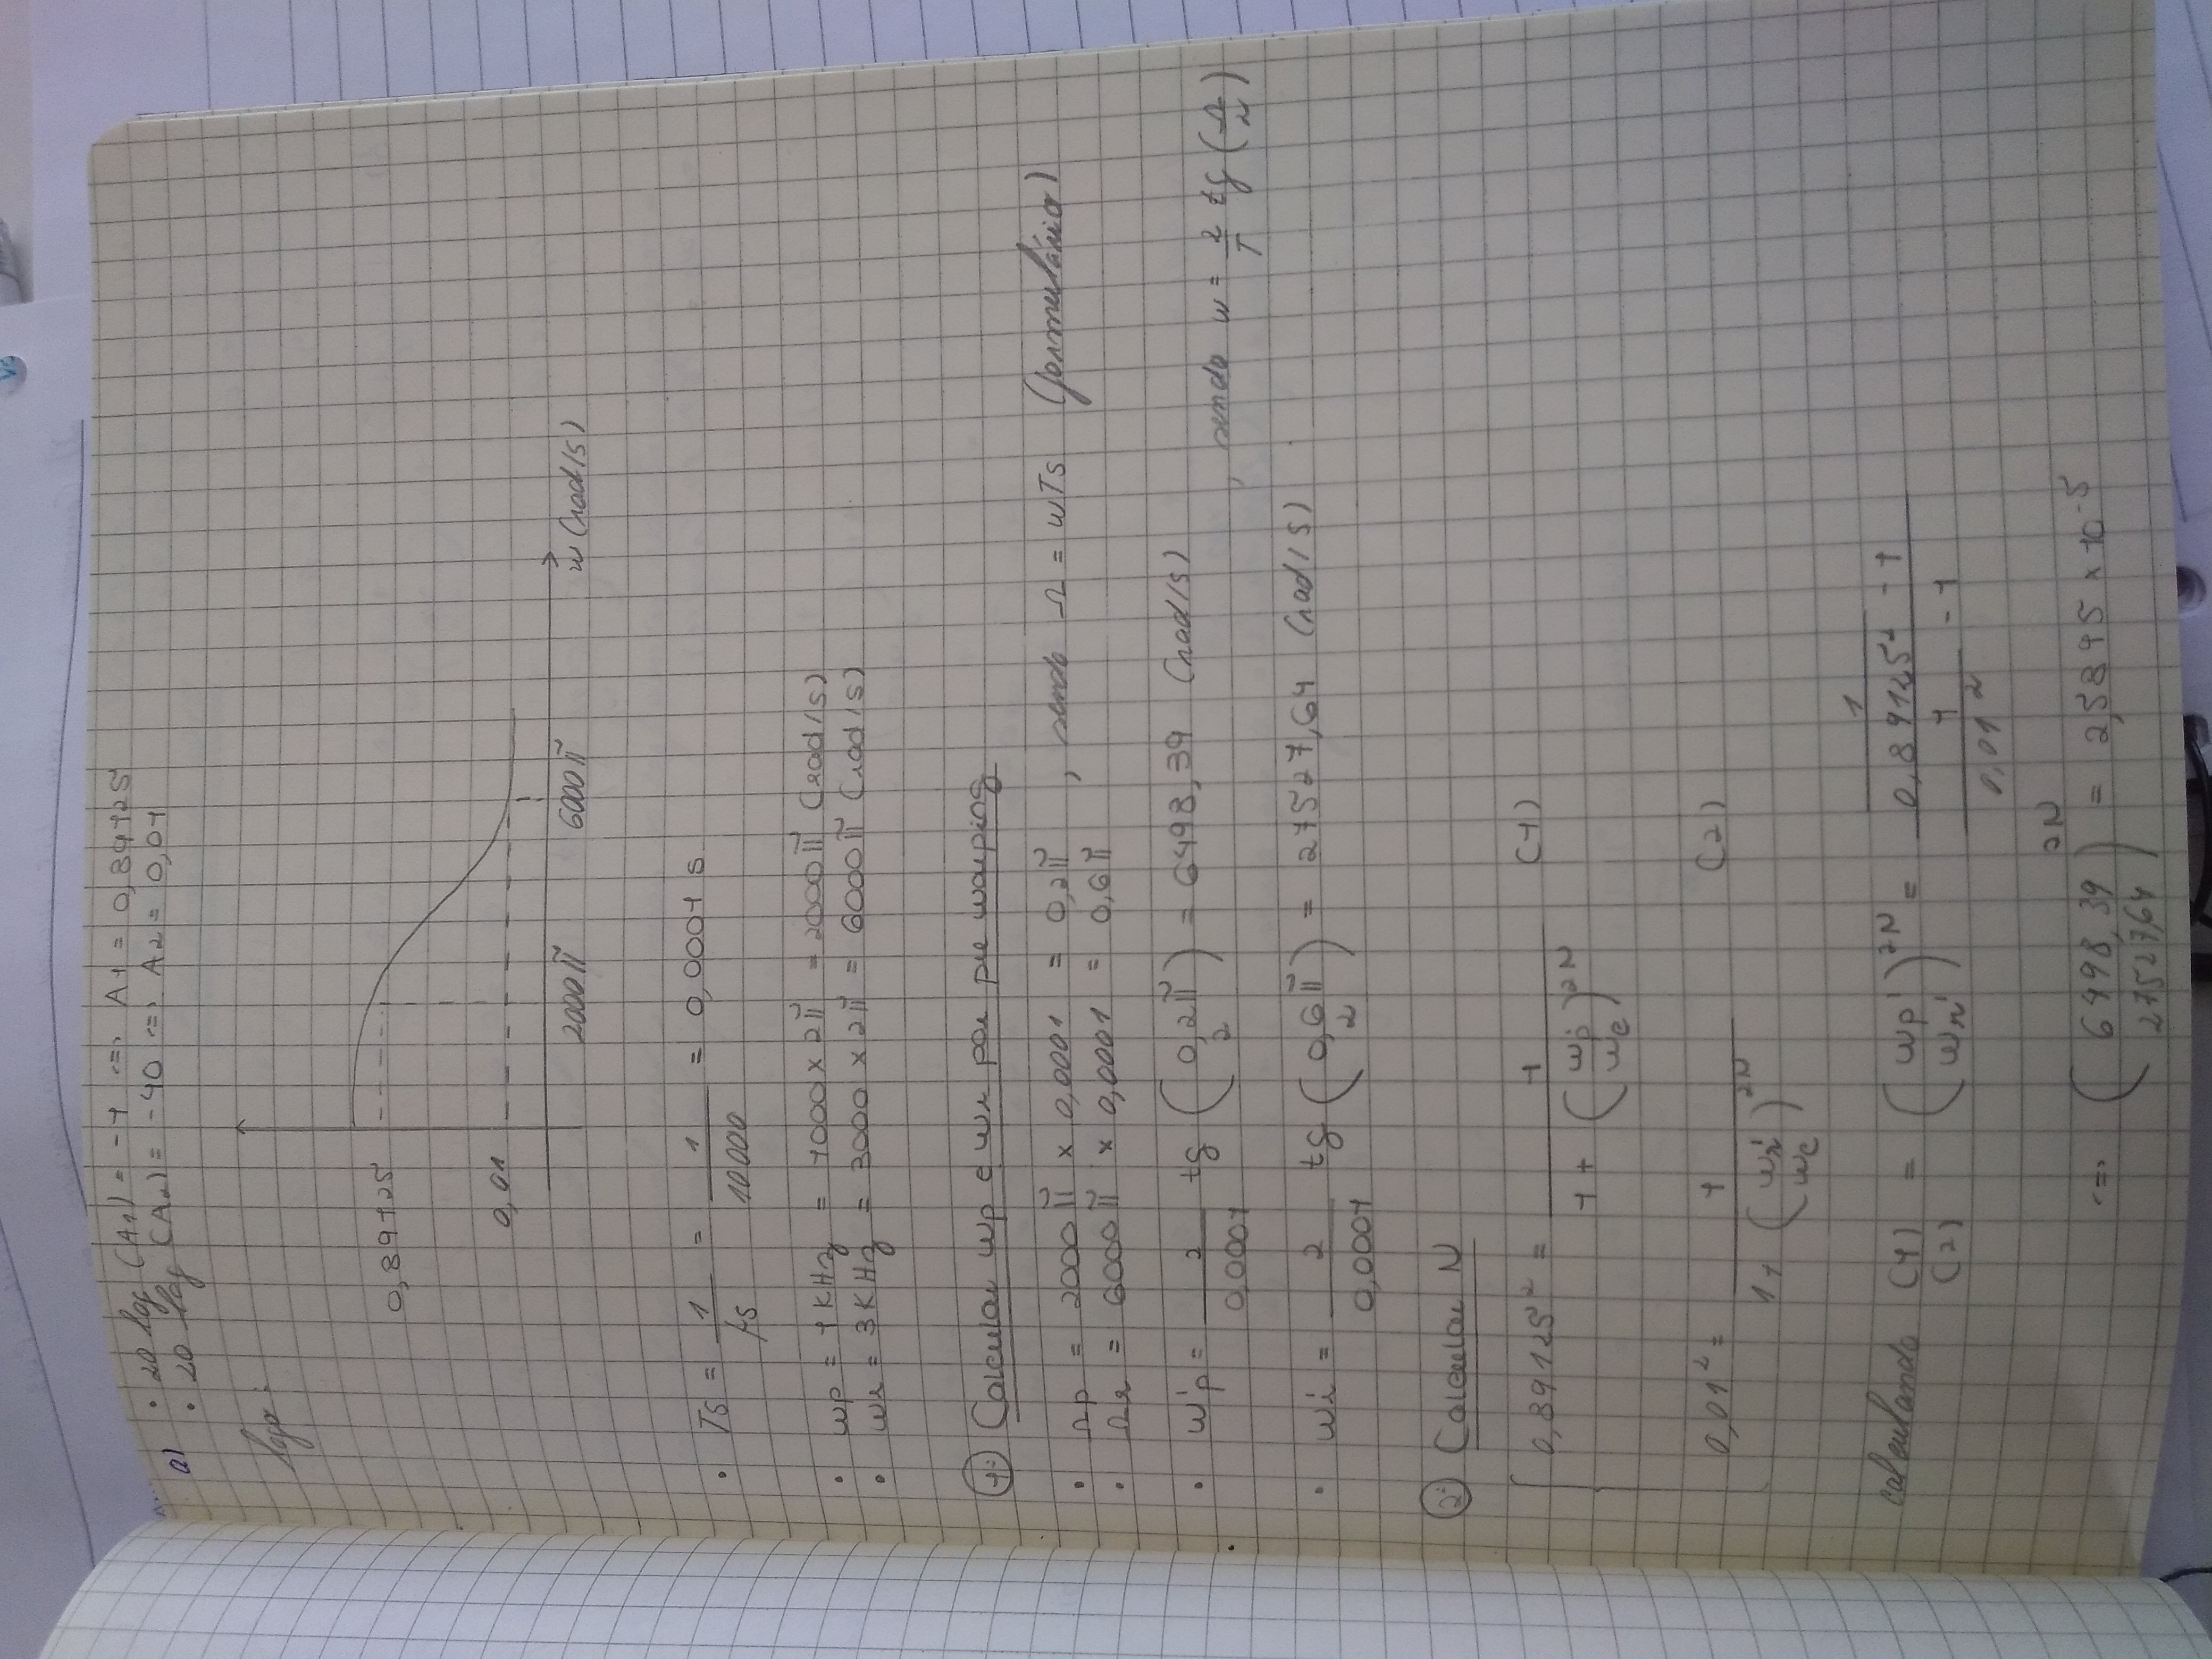 a) • 20 log (A1) = -1 <=> A1 = 0,89125
• 20 log (A2) = -40 <=> A2 = 0,01
logo:
0,89125
0,01
2000π 6000π w (rad/s)
• Ts = 1/fs = 1/10000 = 0,0001 s
• wp = 1 KHz = 1000 x 2π = 2000π (rad/s)
• wr = 3 KHz = 3000 x 2π = 6000π (rad/s)
1º Calcular wp e wr por pre warping
• Ωp = 2000π x 0,0001 = 0,2π , sendo Ω = wTs (formulário)
• Ωr = 6000π x 0,0001 = 0,6π
• w'p = 2/0,0001 tg (0,2π/2) = 6498,39 (rad/s) , sendo w = 2/T tg (Ω/2)
• w'r = 2/0,0001 tg (0,6π/2) = 27527,64 (rad/s).
2º Calcular N
0,89125² = 1/(1 + (w'p/wc)^2N) (1)
0,01² = 1/(1+ (w'r/wc)^2N) (2)
calculando (1)/(2) = (wp'/wr')^2N = (1/0,89125² - 1)/(1/0,01² - 1)
<=> (6498,39/27527,64)^2N = 2,5895 x 10^-5